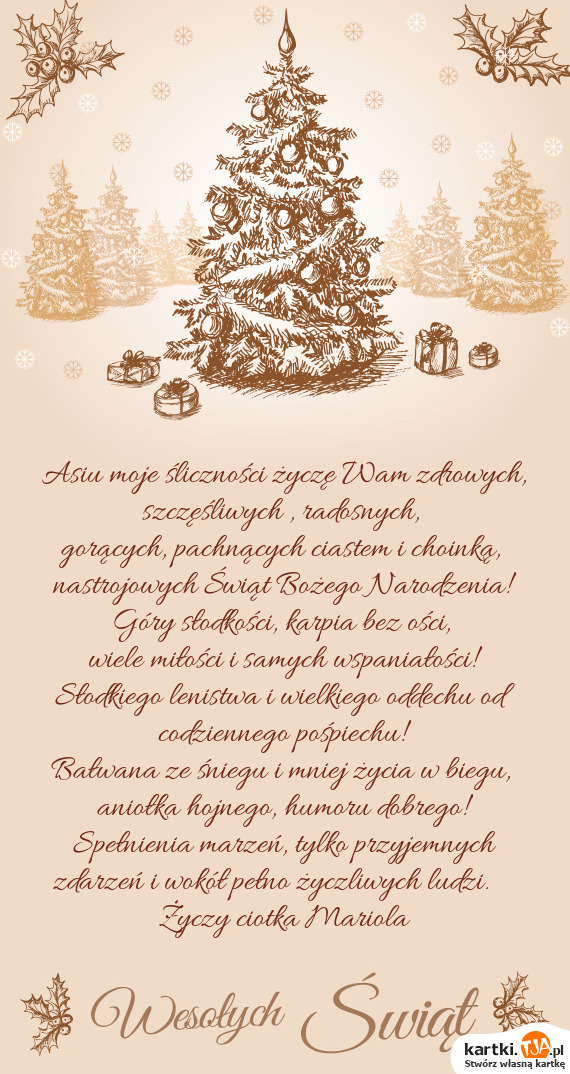 Asiu moje śliczności życzę Wam zdrowych,
szczęśliwych , radosnych,
gorących, pachnących ciastem i choinką,
nastrojowych Świąt Bożego Narodzenia!
Góry słodkości, karpia bez ości,
wiele miłości i samych wspaniałości!
Słodkiego lenistwa i wielkiego oddechu od
codziennego pośpiechu!
Bałwana ze śniegu i mniej życia w biegu,
aniołka hojnego, humoru dobrego!
Spełnienia marzeń, tylko przyjemnych
zdarzeń i wokół pełno życzliwych ludzi.
Życzy ciotka Mariola
Wesołych Świąt
kartki.TJA.pl
Stwórz własną kartkę